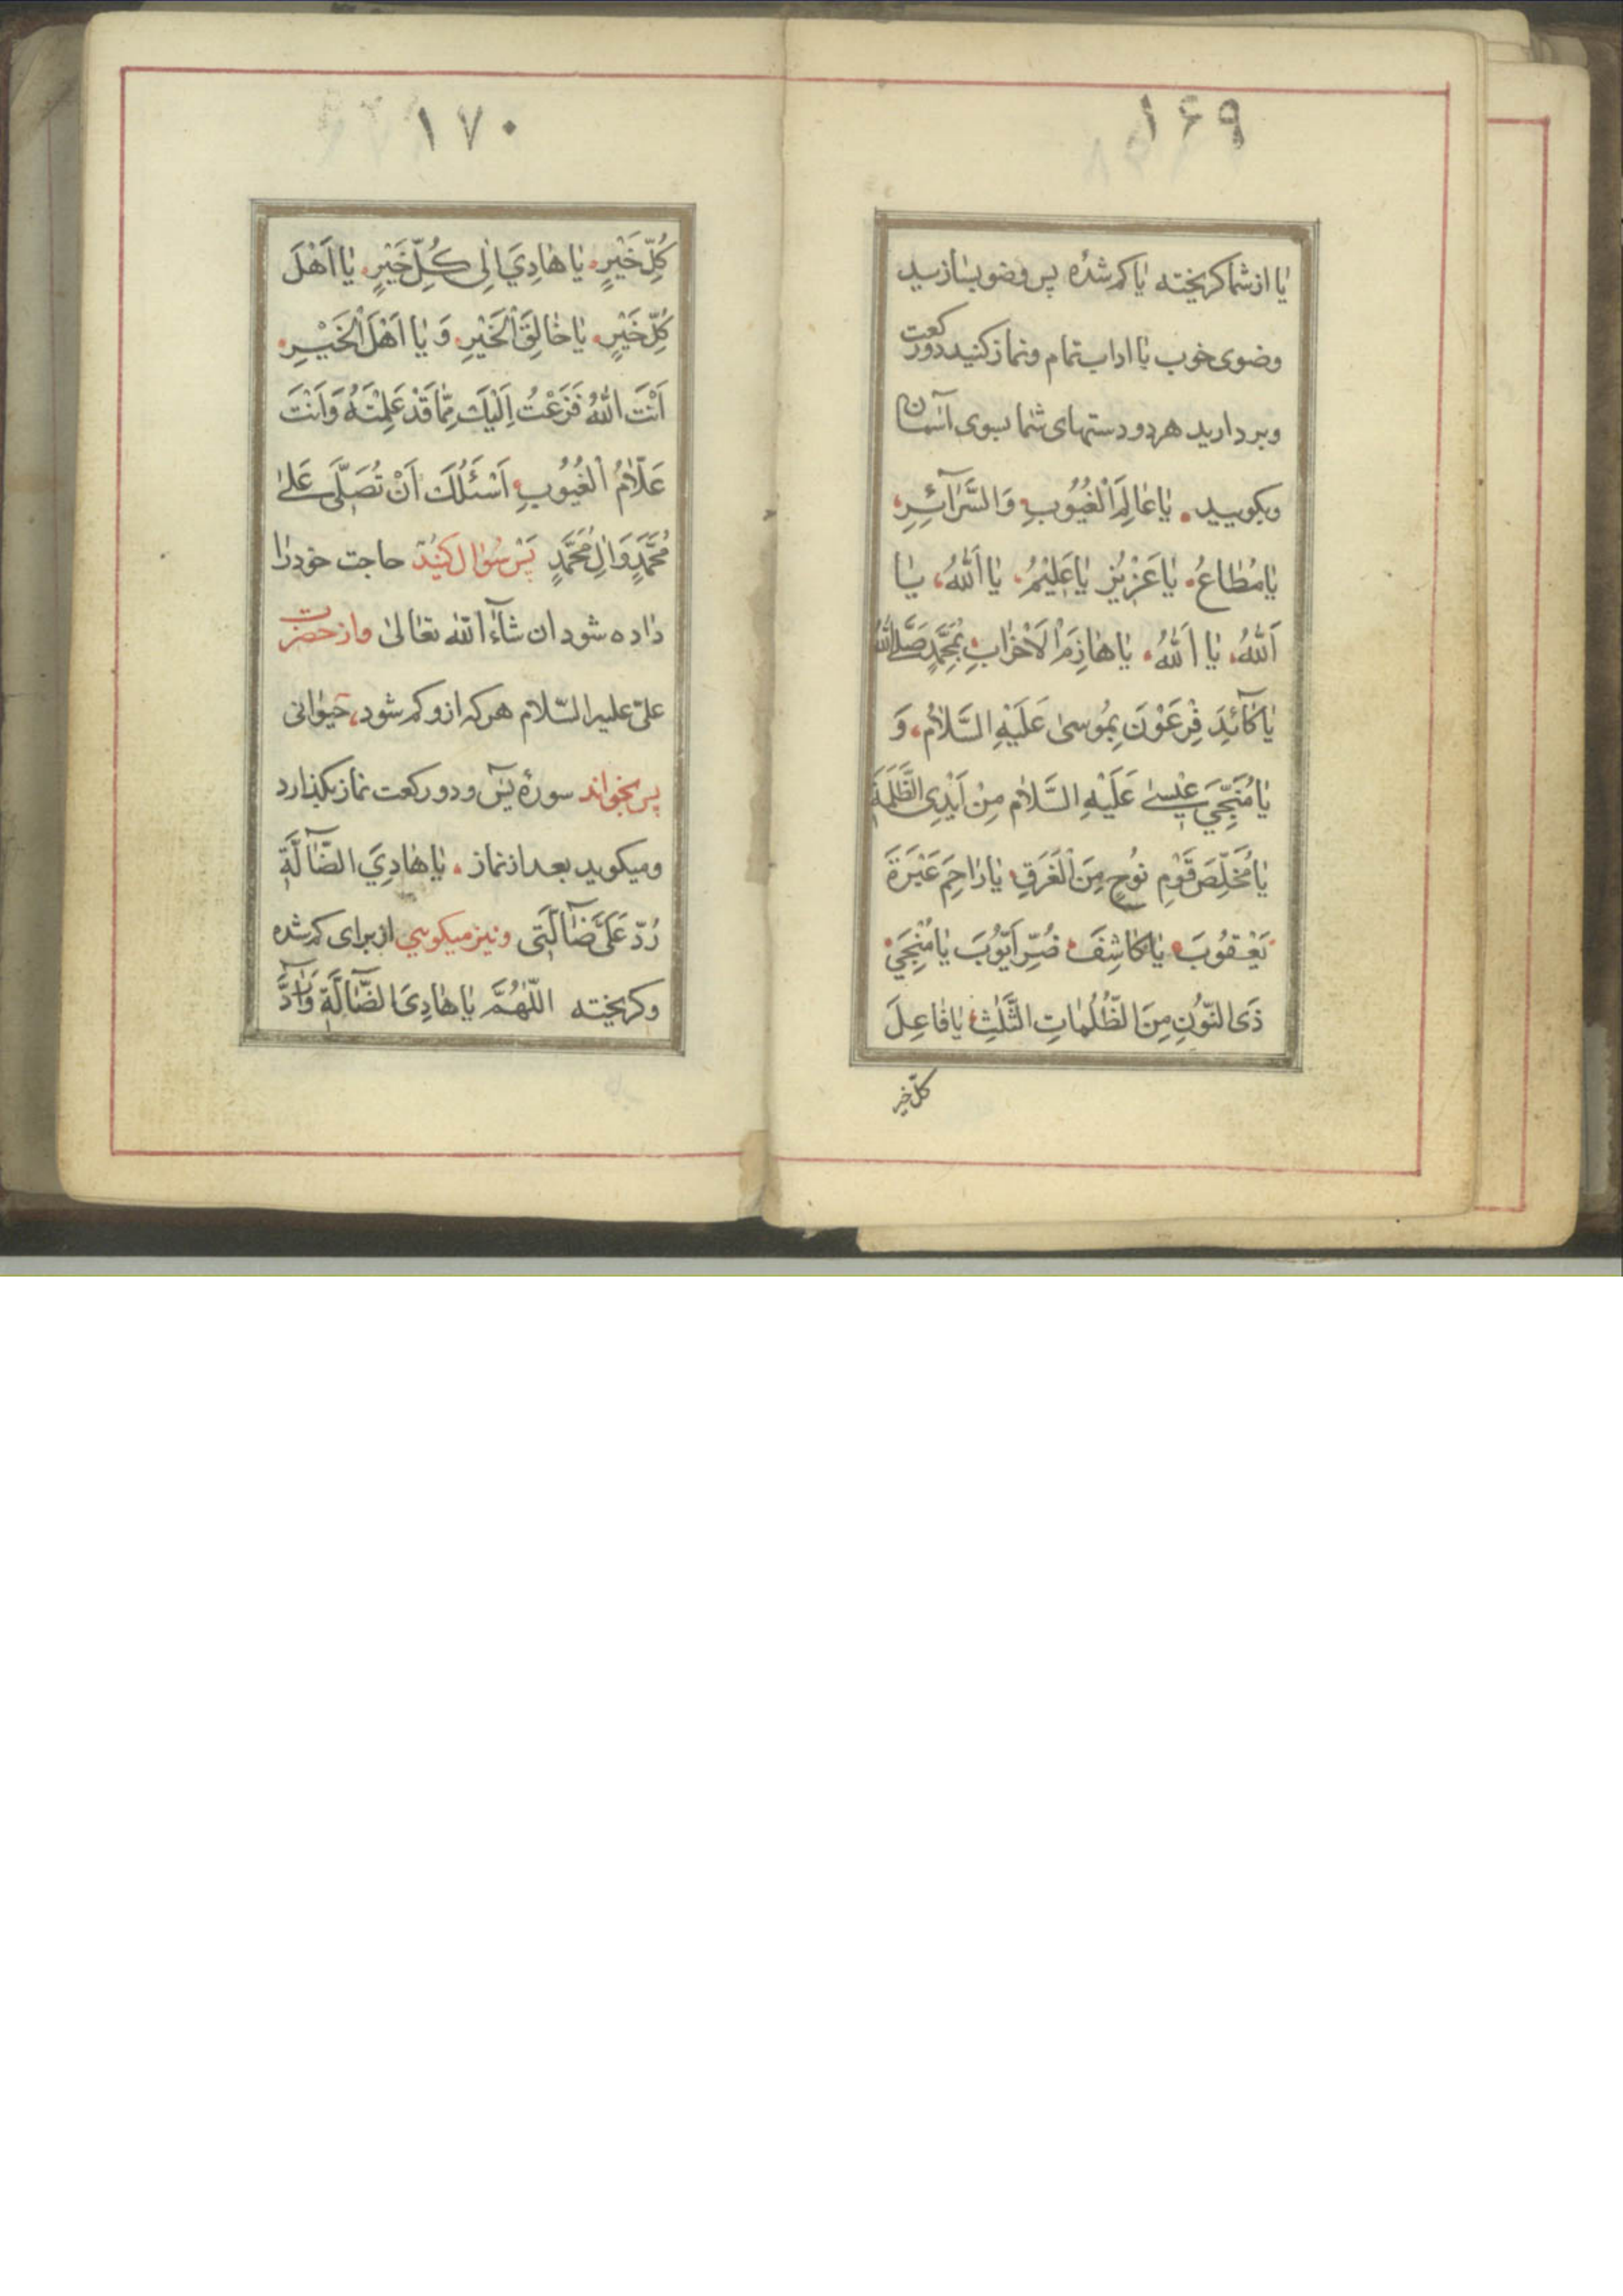 ۱۶۹
یا از شما کریخته یا کم شده پس وضو بسازید
وضوی خوب با اداب تمام و نماز کنید دو رکعت
و بردارید هر دو دستهای شما بسوی آسمان
و بکویید یٰا عٰالِمَ الْغُیُوبِ وَالسَّرٰآئِرِ
یٰا مُطٰاعُ یٰا عَزٖیزُ یٰا عَلیٖمُ یٰا اَللّٰهُ، یٰا
اَللّٰهُ، یٰا اَللّٰهُ، یٰا هٰازِمَ الْاَحْزٰابِ بِمُحَمَّدٍ صَلَّی اللّٰهُ
یٰا کٰآئِدَ فِرْعَوْنَ بِمُوسیٰ عَلَیْهِ السَّلٰامُ، وَ
یٰا مُنَجِّیَ عیٖسیٰ عَلَیْهِ السَّلٰام مِنْ اَیْدِی الظَّلَمَةِ
یٰا مُخَلِّصَ قَوْمِ نُوحٍ مِنَ الْغَرَقِ یٰا رٰاحِمَ عَبْرَةَ
یَعْقُوبَ یٰا کٰاشِفَ ضُرِّ اَیُّوبَ یٰا مُنْجِیَ
ذَی النُّونِ مِنَ الظُّلُمٰاتِ الثَّلٰثِ یٰا فٰاعِلَ
کلّ خیر
۱۷۰
کُلِّ خَیْرٍ یٰا هٰادِیَ اِلٰی کُلِّ خَیْرٍ یٰا اَهْلَ
کُلِّ خَیْرٍ یٰا خٰالِقَ الْخَیْرِ وَ یٰا اَهْلَ الْخَیْرِ
اَنْتَ اللّٰهُ فَزَعْتُ اِلَیْكَ مِمّٰا قَدْ عَلِمْتَهُ وَاَنْتَ
عَلّٰامُ الْغُیُوبِ اَسْئَلُكَ اَنْ تُصَلِّیَ عَلیٰ
مُحَمَّدٍ وَاٰلِ مُحَمَّدٍ پَسْ سُؤال کنید حاجت خود را
داده شود ان شآء اللّٰه تعالیٰ و از حضرت
علیّ علیه السّلام هر که از و کم شود، حیوانی
پس بخواند سورهٔ یٓس و دو رکعت نماز بکذارد
و میکوید بعد از نماز یٰا هٰادِیَ الضّٰآلَّةِ
رُدَّ عَلَیَّ ضٰآلَّتٖی و نیز میکویی از برای کم شده
و کریخته اللّٰهُمَّ یٰا هٰادِیَ الضّٰآلَّةِ وَ رٰآدَّ